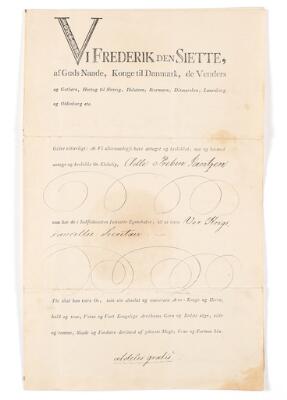 VI FREDERIK DEN SIETTE,
af Guds Naade, Konge til Danmark, de Venders
og Gothers, Hertug til Slesvig, Holsteen, Stormarn, Ditmarsken, Lauenborg
og Oldenborg etc.
Giøre vitterligt: At Vi allernaadigst have antaget og beskikket, saa og hermed
antage og beskikke Os Elskelig,
som her da i
Vor Krigs
Cancellie Secretair
Thi skal han være Os, som sin absolut og souveraine Arve-Konge og Herre,
huld og troe, Vores og Vort Kongelige Arvehuuses Gavn og Bedste søge, vide
og ramme, Skade og Fordærv derimod af yderste Magt, Evne og Formue hin-
aldeles gratis